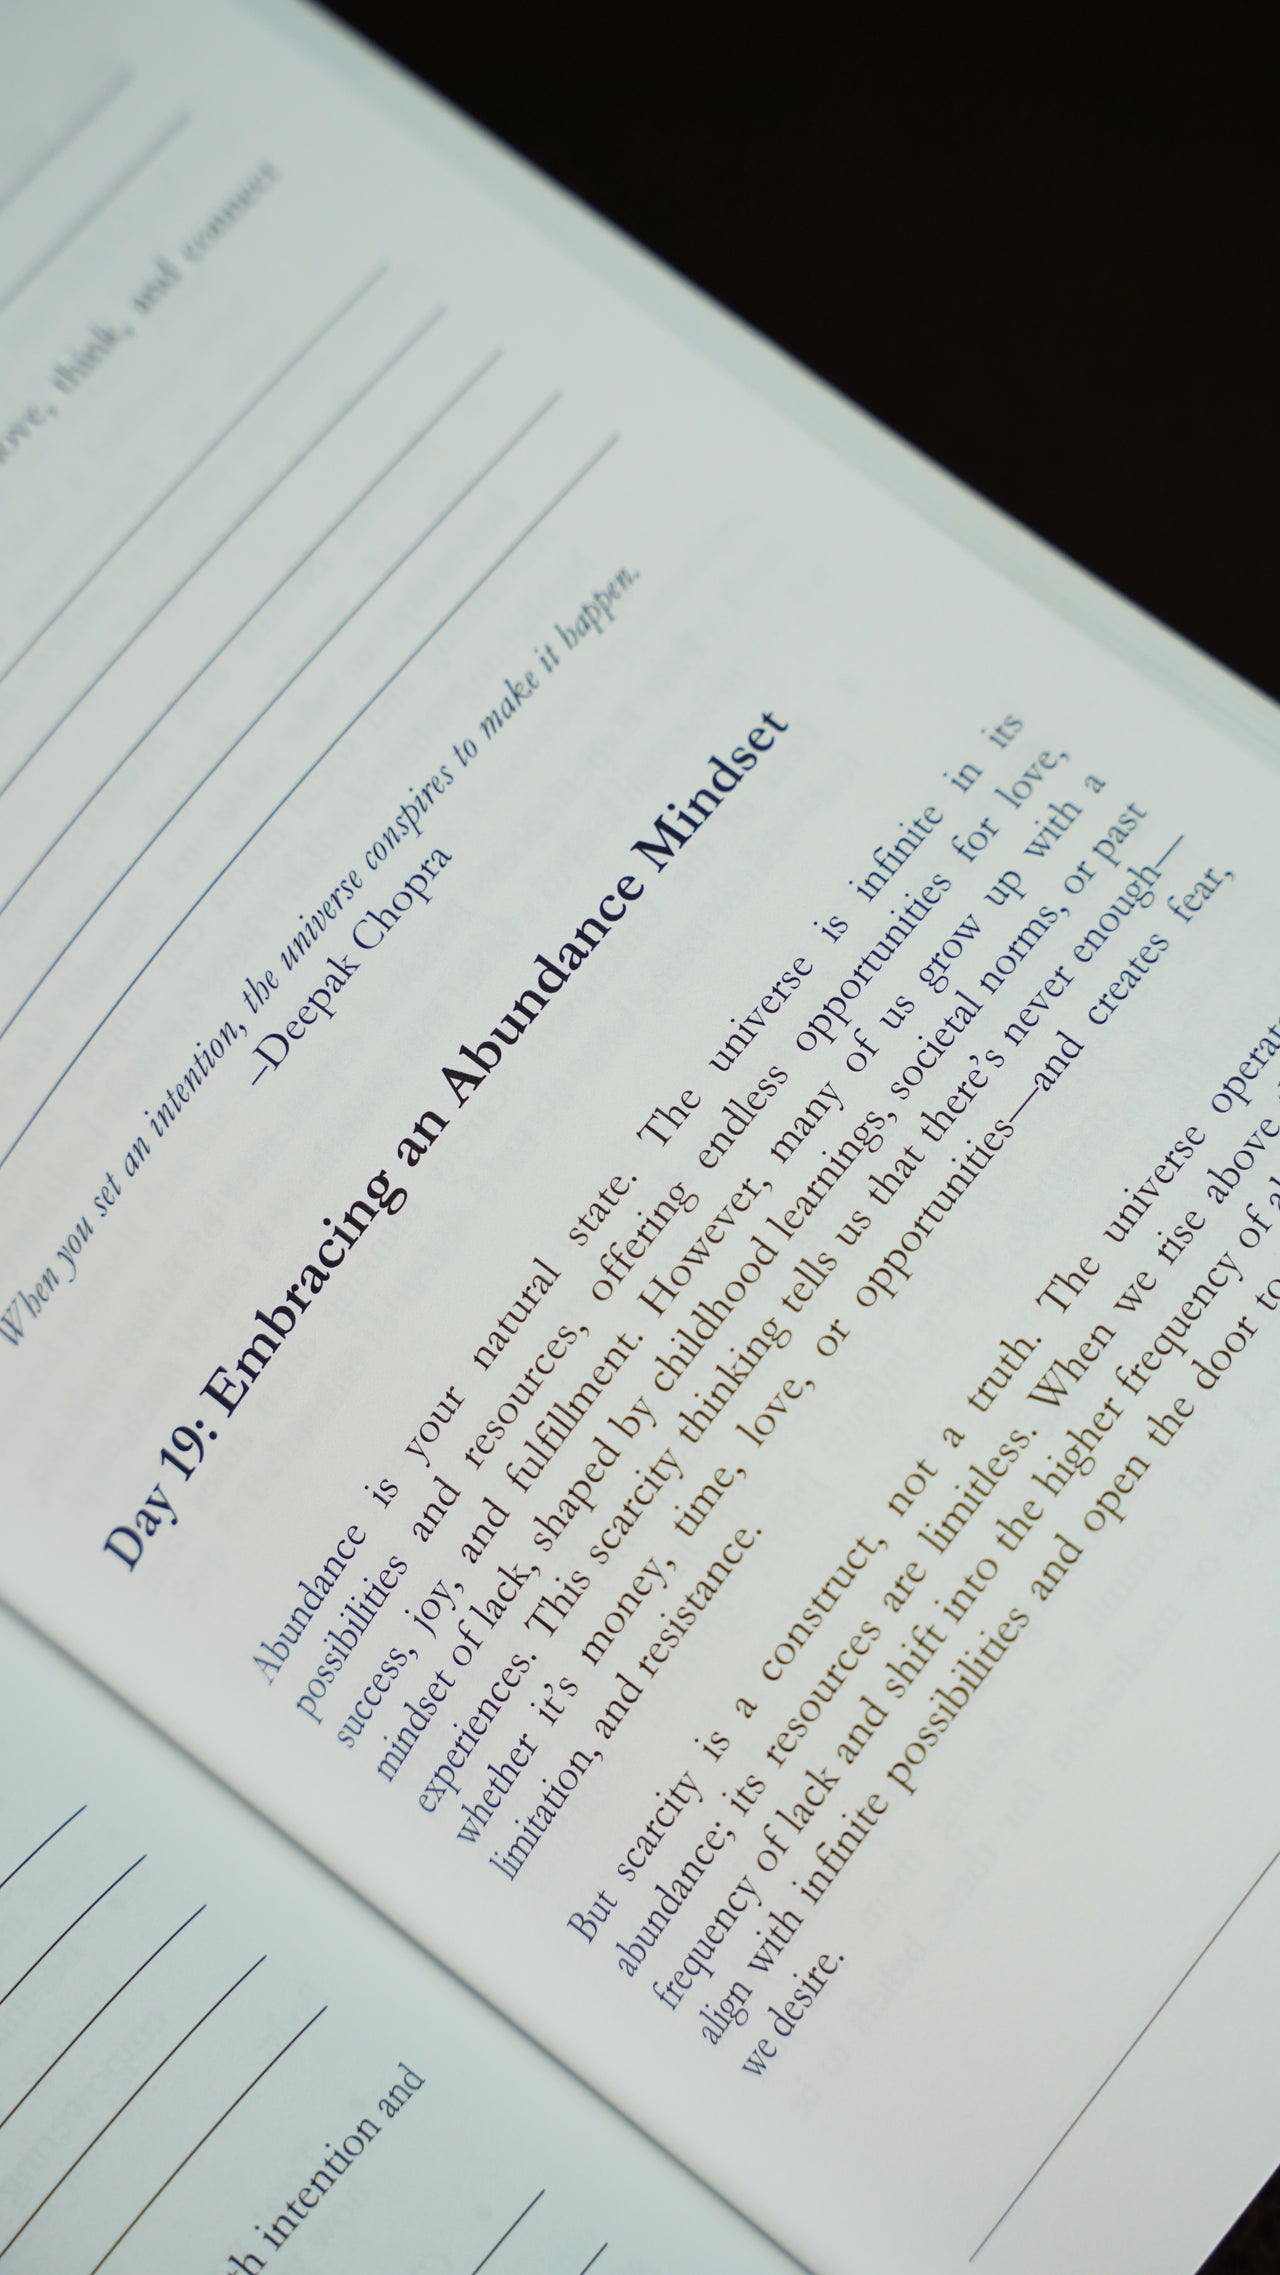 love, think, and connect
When you set an intention, the universe conspires to make it happen.
–Deepak Chopra
Day 19: Embracing an Abundance Mindset
Abundance is your natural state. The universe is infinite in its
possibilities and resources, offering endless opportunities for love,
success, joy, and fulfillment. However, many of us grow up with a
mindset of lack, shaped by childhood learnings, societal norms, or past
experiences. This scarcity thinking tells us that there's never enough—
whether it's money, time, love, or opportunities—and creates fear,
limitation, and resistance.
But scarcity is a construct, not a truth. The universe
abundance; its resources are limitless. When we rise above
frequency of lack and shift into the higher frequency of
align with infinite possibilities and open the door to
we desire.
intention and